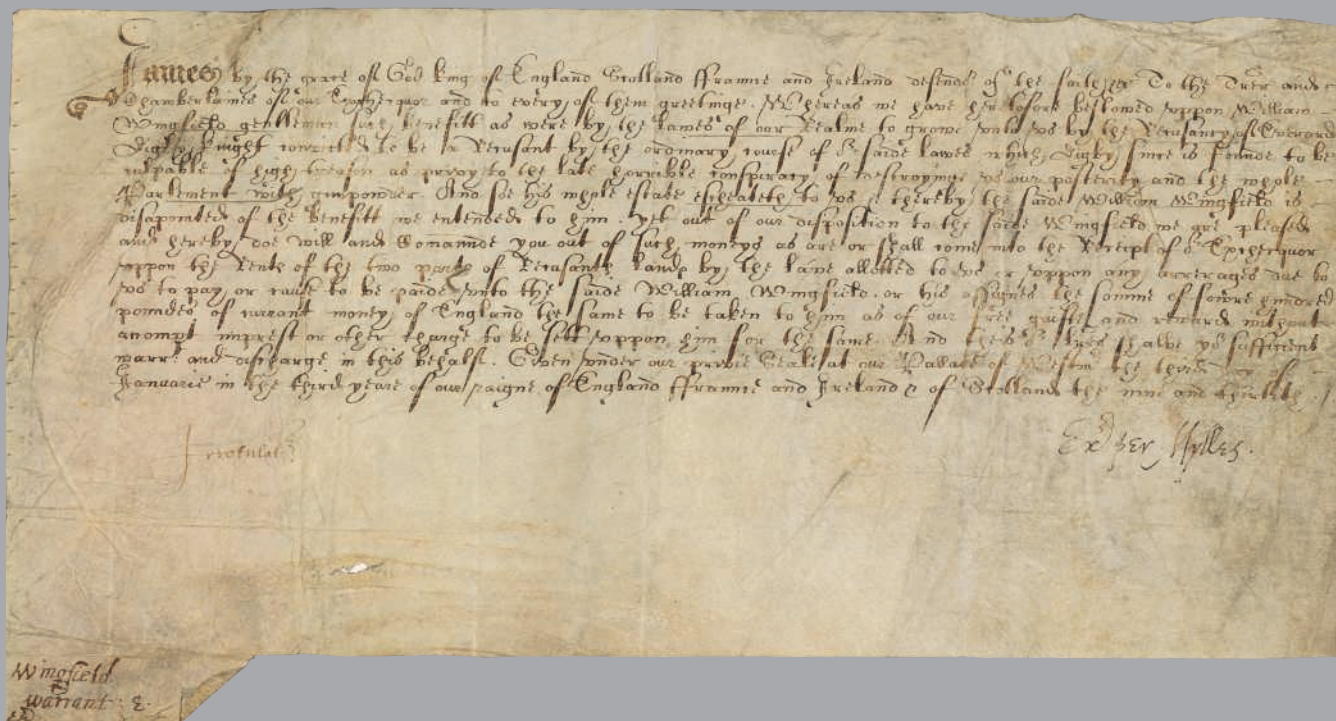 James by the grace of God King of England Scotland ffrance and Ireland defendor of the faith &c To the Trer and
Chamberlaines of our Exchequor and to every of them greetinge. Whereas we have heretofore bestowed uppon William
Wingfield gentleman such benefitt as were by the lawes of our Realme to growe unto us by the Recusancy of Everard
Digby knight convicted to be a Recusant by the ordinary course of or saide lawes which Digby since is founde to be
culpable of high treason as privy to the late horrible conspiracy of destroyinge us our posterity and the whole
Parlement with gunpowder. And soe his whole estate escheateth to us & thereby the saide William Wingfield is
disapointed of the benefitt we entended to him. yet out of our disposition to the saide Wingfield we are pleased
and hereby doe will and Comaunde you out of such moneys as are or shall come into the Receipt of or Exchecquor
uppon the Rents of the two parts of Recusants lands by the lawe allotted to us or uppon any arrerages due to
us to pay or cause to be paide unto the saide William Wingfield or his assignes the somme of fowre hundred
poundes of currant money of England the same to be taken to him as of our free guifte and reward without
accompt imprest or other charge to be sett uppon him for the same. And theis or lres shalbe yor sufficient
warrt and discharge in this behalfe. Given under our privie Seale at our Pallace of Westm the third day of
Januarie in the third yeare of our raigne of England ffrance and Ireland & of Scotland the nine and thirtith.
Irrotulat
Wingfield
warrant